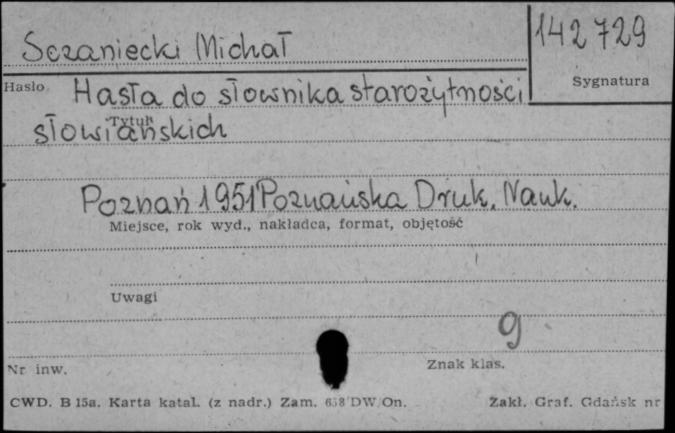 Sczaniecki Michał
142 729
Hasło
Sygnatura
Hasła do słownika starożytności
Tytuł
słowiańskich
Poznań 1951 Poznańska Druk. Nauk.
Miejsce, rok wyd., nakładca, format, objętość
Uwagi
9
Nr inw.
Znak klas.
CWD. B 15a. Karta katal. (z nadr.) Zam. 638 DW/On. Zakł. Graf. Gdańsk nr